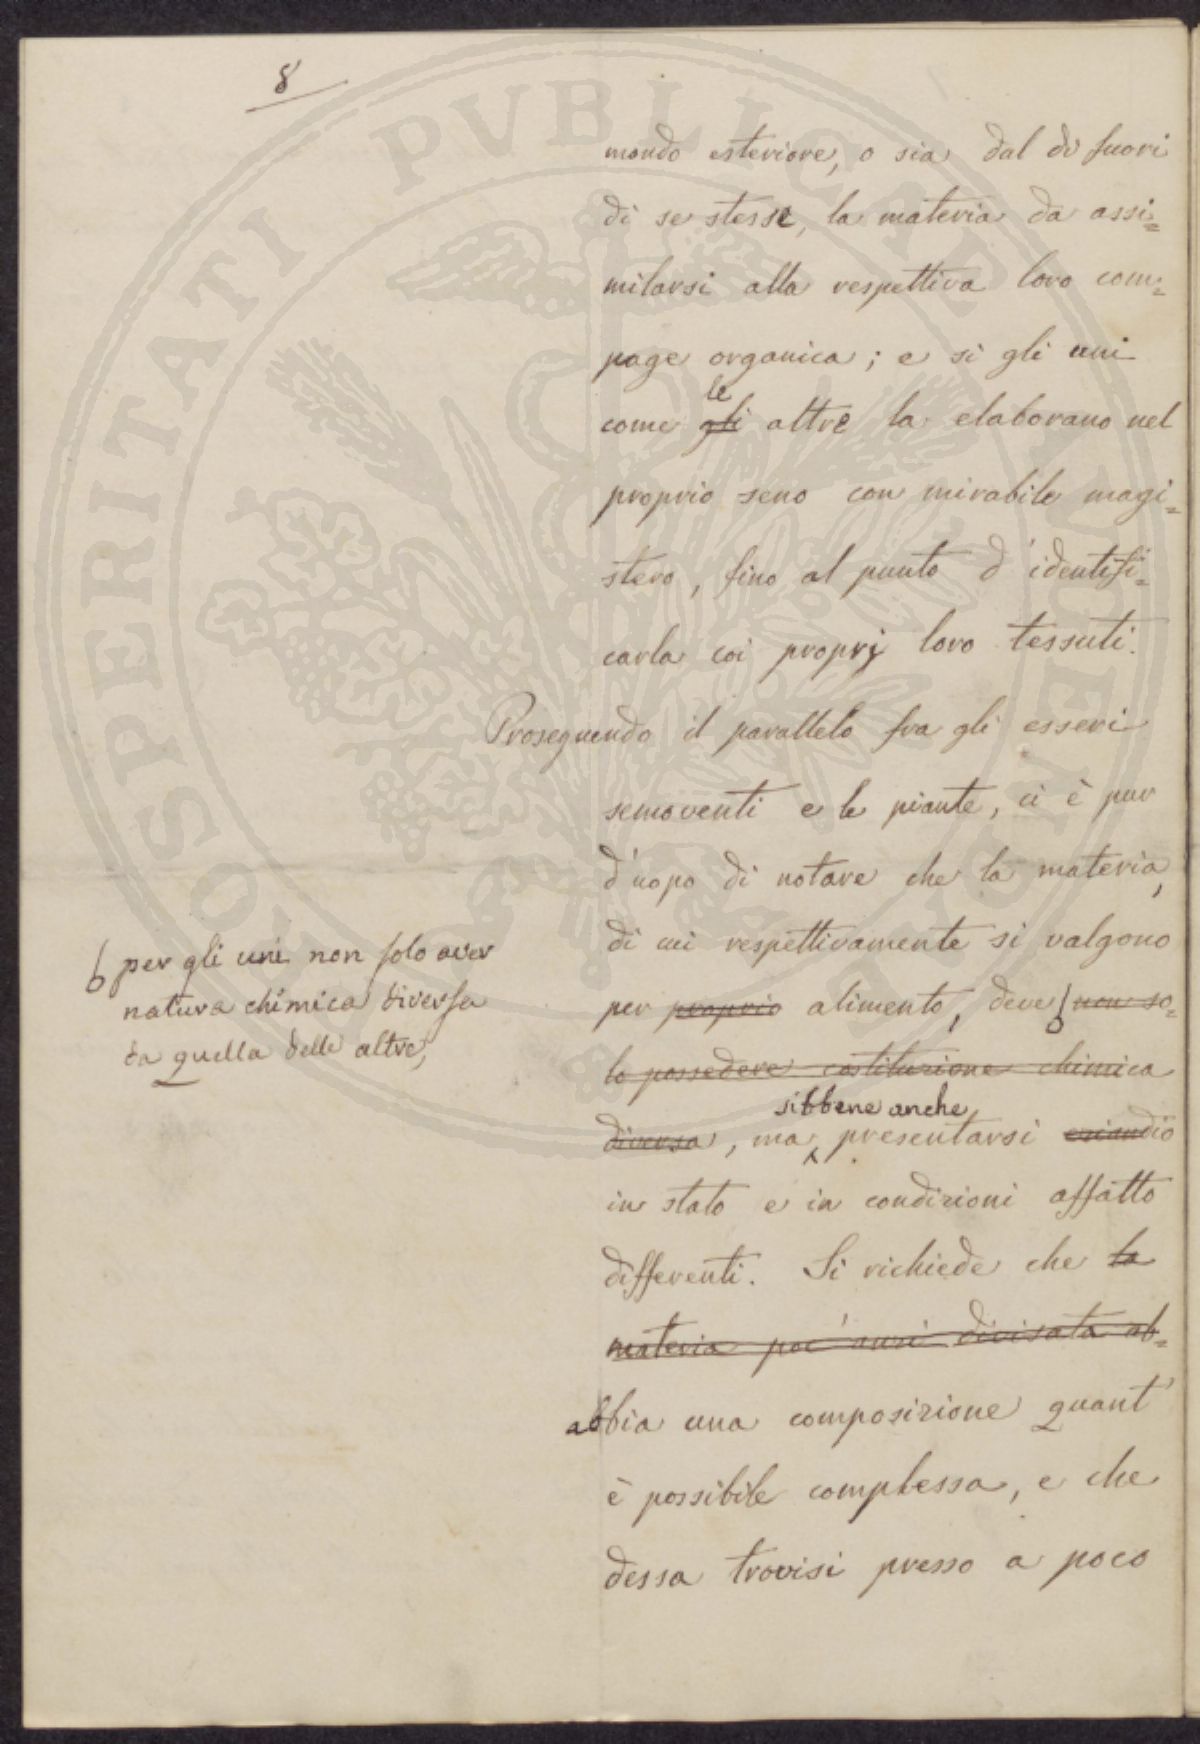 8
mondo esteriore, o sia dal di fuori
di se stesse, la materia da assi=
milarsi alla respettiva loro com=
page organica; e sì gli uni
le
come gli altre la elaborano nel
proprio seno con mirabile magi=
stero, fino al punto d'identifi=
carla coi proprj loro tessuti.
Proseguendo il parallelo fra gli esseri
semoventi e le piante, ci è pur
d'uopo di notare che la materia,
di cui respettivamente si valgono
per proprio alimento, deve non so=
lo possedere costituzione chimica
sibbene anche
diversa, ma presentarsi eziandio
in stato e in condizioni affatto
differenti. Si richiede che la
materia poc'anzi divisata ab=
abbia una composizione quant'
è possibile complessa, e che
dessa trovisi presso a poco
per gli uni non solo aver
natura chimica diversa
da quella delle altre,
PROSPERITATI PVBLICAE AVGENDAE